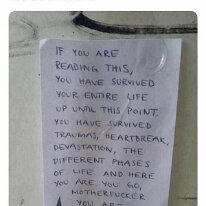 IF YOU ARE
READING THIS,
YOU HAVE SURVIVED
YOUR ENTIRE LIFE
UP UNTIL THIS POINT.
YOU HAVE SURVIVED
TRAUMAS, HEARTBREAK,
DEVASTATION, THE
DIFFERENT PHASES
OF LIFE AND HERE
YOU ARE. YOU GO,
MOTHERFUCKER
YOU ARE